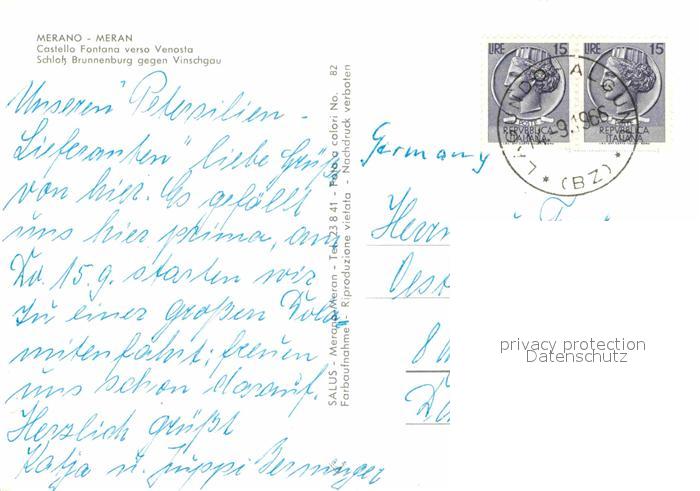 MERANO - MERAN
Castello Fontana verso Venosta
Schloß Brunnenburg gegen Vinschgau
Unseren "Petersilien-
Lieferanten" liebe Grüße
von hier. Es gefällt
uns hier prima, am
Do. 15.9. starten wir
zu einer großen Dolo-
mitenfahrt; freuen
uns schon darauf.
Herzlich grüßt
Katja u. Juppi Berninger
SALUS - Merano/Meran - Tel. 23 8 41 - Foto a colori No. 82
Farbaufnahme - Riproduzione vietata - Nachdruck verboten
LIRE 15
REPVBBLICA
ITALIANA
LIRE 15
REPVBBLICA
ITALIANA
LAGUNDO * ALGUND
-9.1966
* (BZ) *
Germany
Herrn
8
privacy protection
Datenschutz